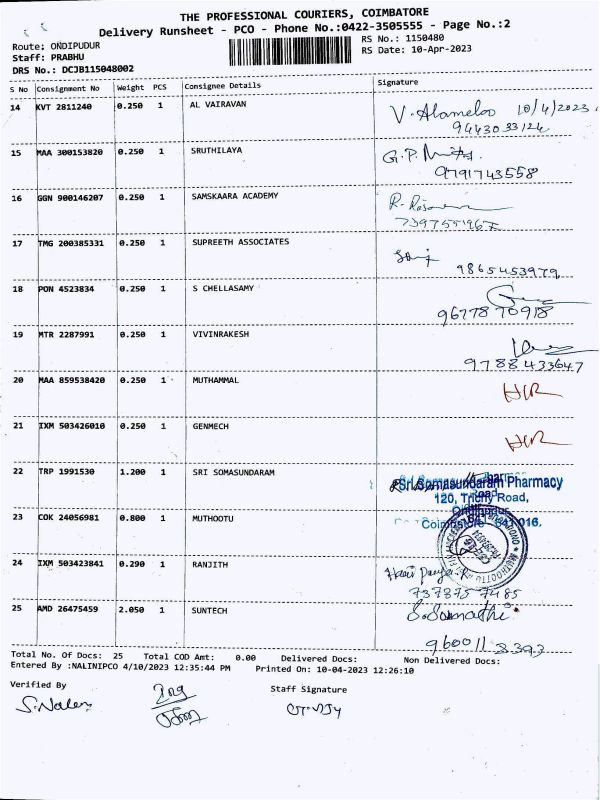 THE PROFESSIONAL COURIERS, COIMBATORE
Delivery Runsheet - PCO - Phone No.:0422-3505555 - Page No.:2
Route: ONDIPUDUR
RS No.: 1150480
Staff: PRABHU
RS Date: 10-Apr-2023
DRS No.: DCJB115048002
S No Consignment No Weight PCS Consignee Details Signature
14 KVT 2811240 0.250 1 AL VAIRAVAN V. Alameloo 10/4/2023
9443033124
15 MAA 300153820 0.250 1 SRUTHILAYA G.P.
9791743558
16 GGN 900146207 0.250 1 SAMSKAARA ACADEMY
17 TMG 200385331 0.250 1 SUPREETH ASSOCIATES
9865453979
18 PON 4523834 0.250 1 S CHELLASAMY
9677870918
19 MTR 2287991 0.250 1 VIVINRAKESH
9788433647
20 MAA 859538420 0.250 1 MUTHAMMAL
21 IXM 503426010 0.250 1 GENMECH
22 TRP 1991530 1.200 1 SRI SOMASUNDARAM Sri Somasundaram Pharmacy
120, Trichy Road,
23 COK 24056981 0.800 1 MUTHOOTU
Coimbatore - 641 016.
24 IXM 503423841 0.290 1 RANJITH
7378757485
25 AMD 26475459 2.050 1 SUNTECH S. Sumathi
9600113393
Total No. Of Docs: 25 Total COD Amt: 0.00 Delivered Docs: Non Delivered Docs:
Entered By :NALINIPCO 4/10/2023 12:35:44 PM Printed On: 10-04-2023 12:26:10
Verified By Staff Signature